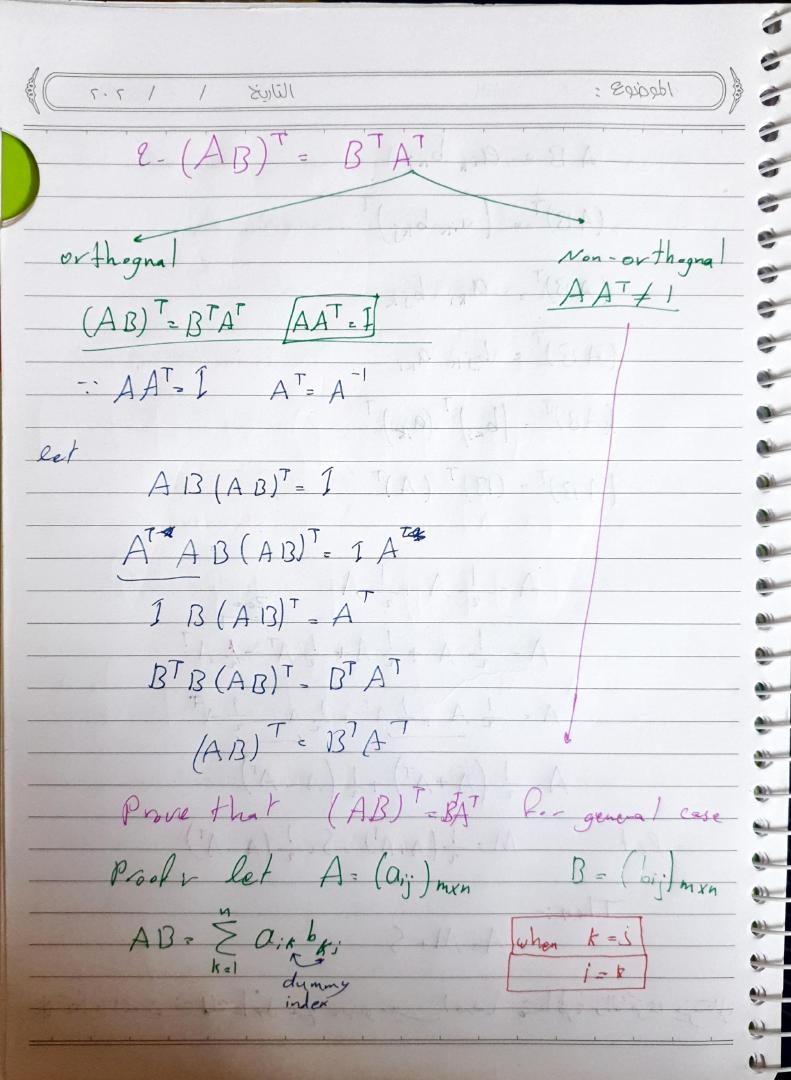 الموضوع :
التاريخ / / ٢٠٢
٤- (AB)ᵀ = Bᵀ Aᵀ
orthognal
Non-orthognal
(AB)ᵀ = BᵀAᵀ AAᵀ = I
A Aᵀ ≠ 1
∵ AAᵀ = I Aᵀ = A⁻¹
let
AB (AB)ᵀ = I
Aᵀ A B (AB)ᵀ = I Aᵀ
I B (AB)ᵀ = Aᵀ
BᵀB (AB)ᵀ = Bᵀ Aᵀ
(AB)ᵀ = Bᵀ Aᵀ
Prove that (AB)ᵀ = BᵀAᵀ for general case
Proof let A = (aᵢⱼ)ₘₓₙ B = (bᵢⱼ)ₘₓₙ
AB = ∑ₖ₌₁ⁿ aᵢₖ bₖⱼ
dummy
index
when k = j
i = k